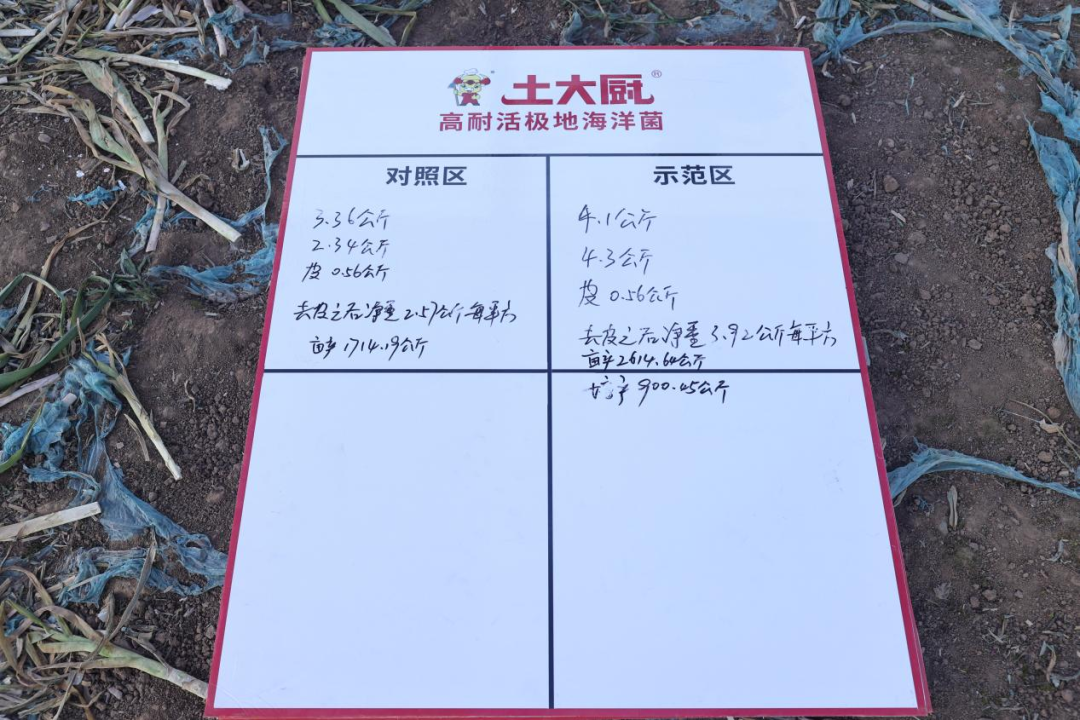 土大厨®
高耐活极地海洋菌
对照区
3.36公斤
2.34公斤
皮 0.56公斤
去皮之后净重 2.57公斤每平方
亩产1714.19公斤
示范区
4.1公斤
4.3公斤
皮 0.56公斤
去皮之后净重 3.92公斤每平方
亩产2614.64公斤
增产900.45公斤